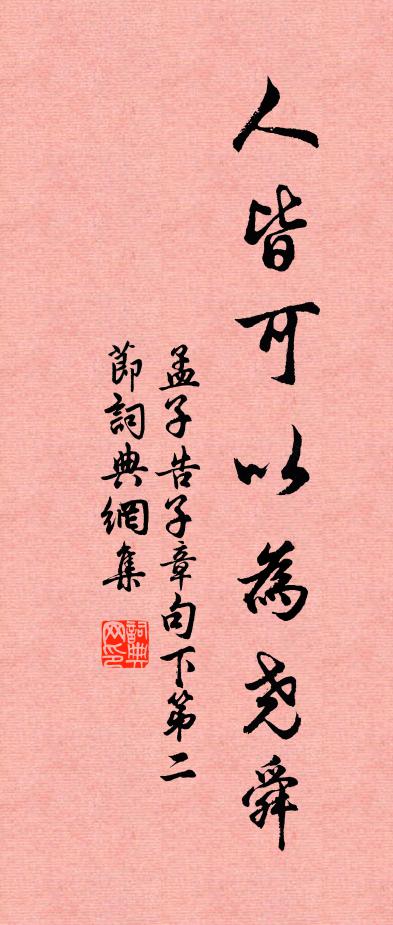 人皆可以為堯舜
孟子告子章句下第二
節詞典網集
詞典网印